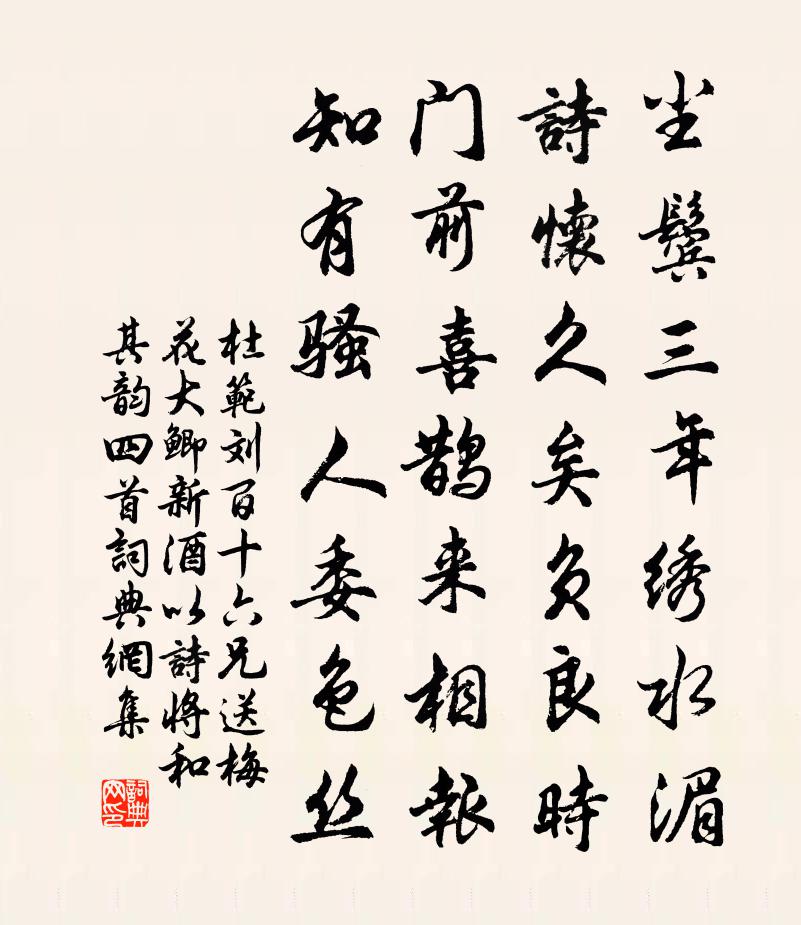 尘鬓三年绣水湄
詩懷久矣負良時
门前喜鹊来相報
知有骚人委色丝
杜範刘百十六兄送梅
花大鲫新酒以詩将和
其韵四首詞典網集
詞典网印